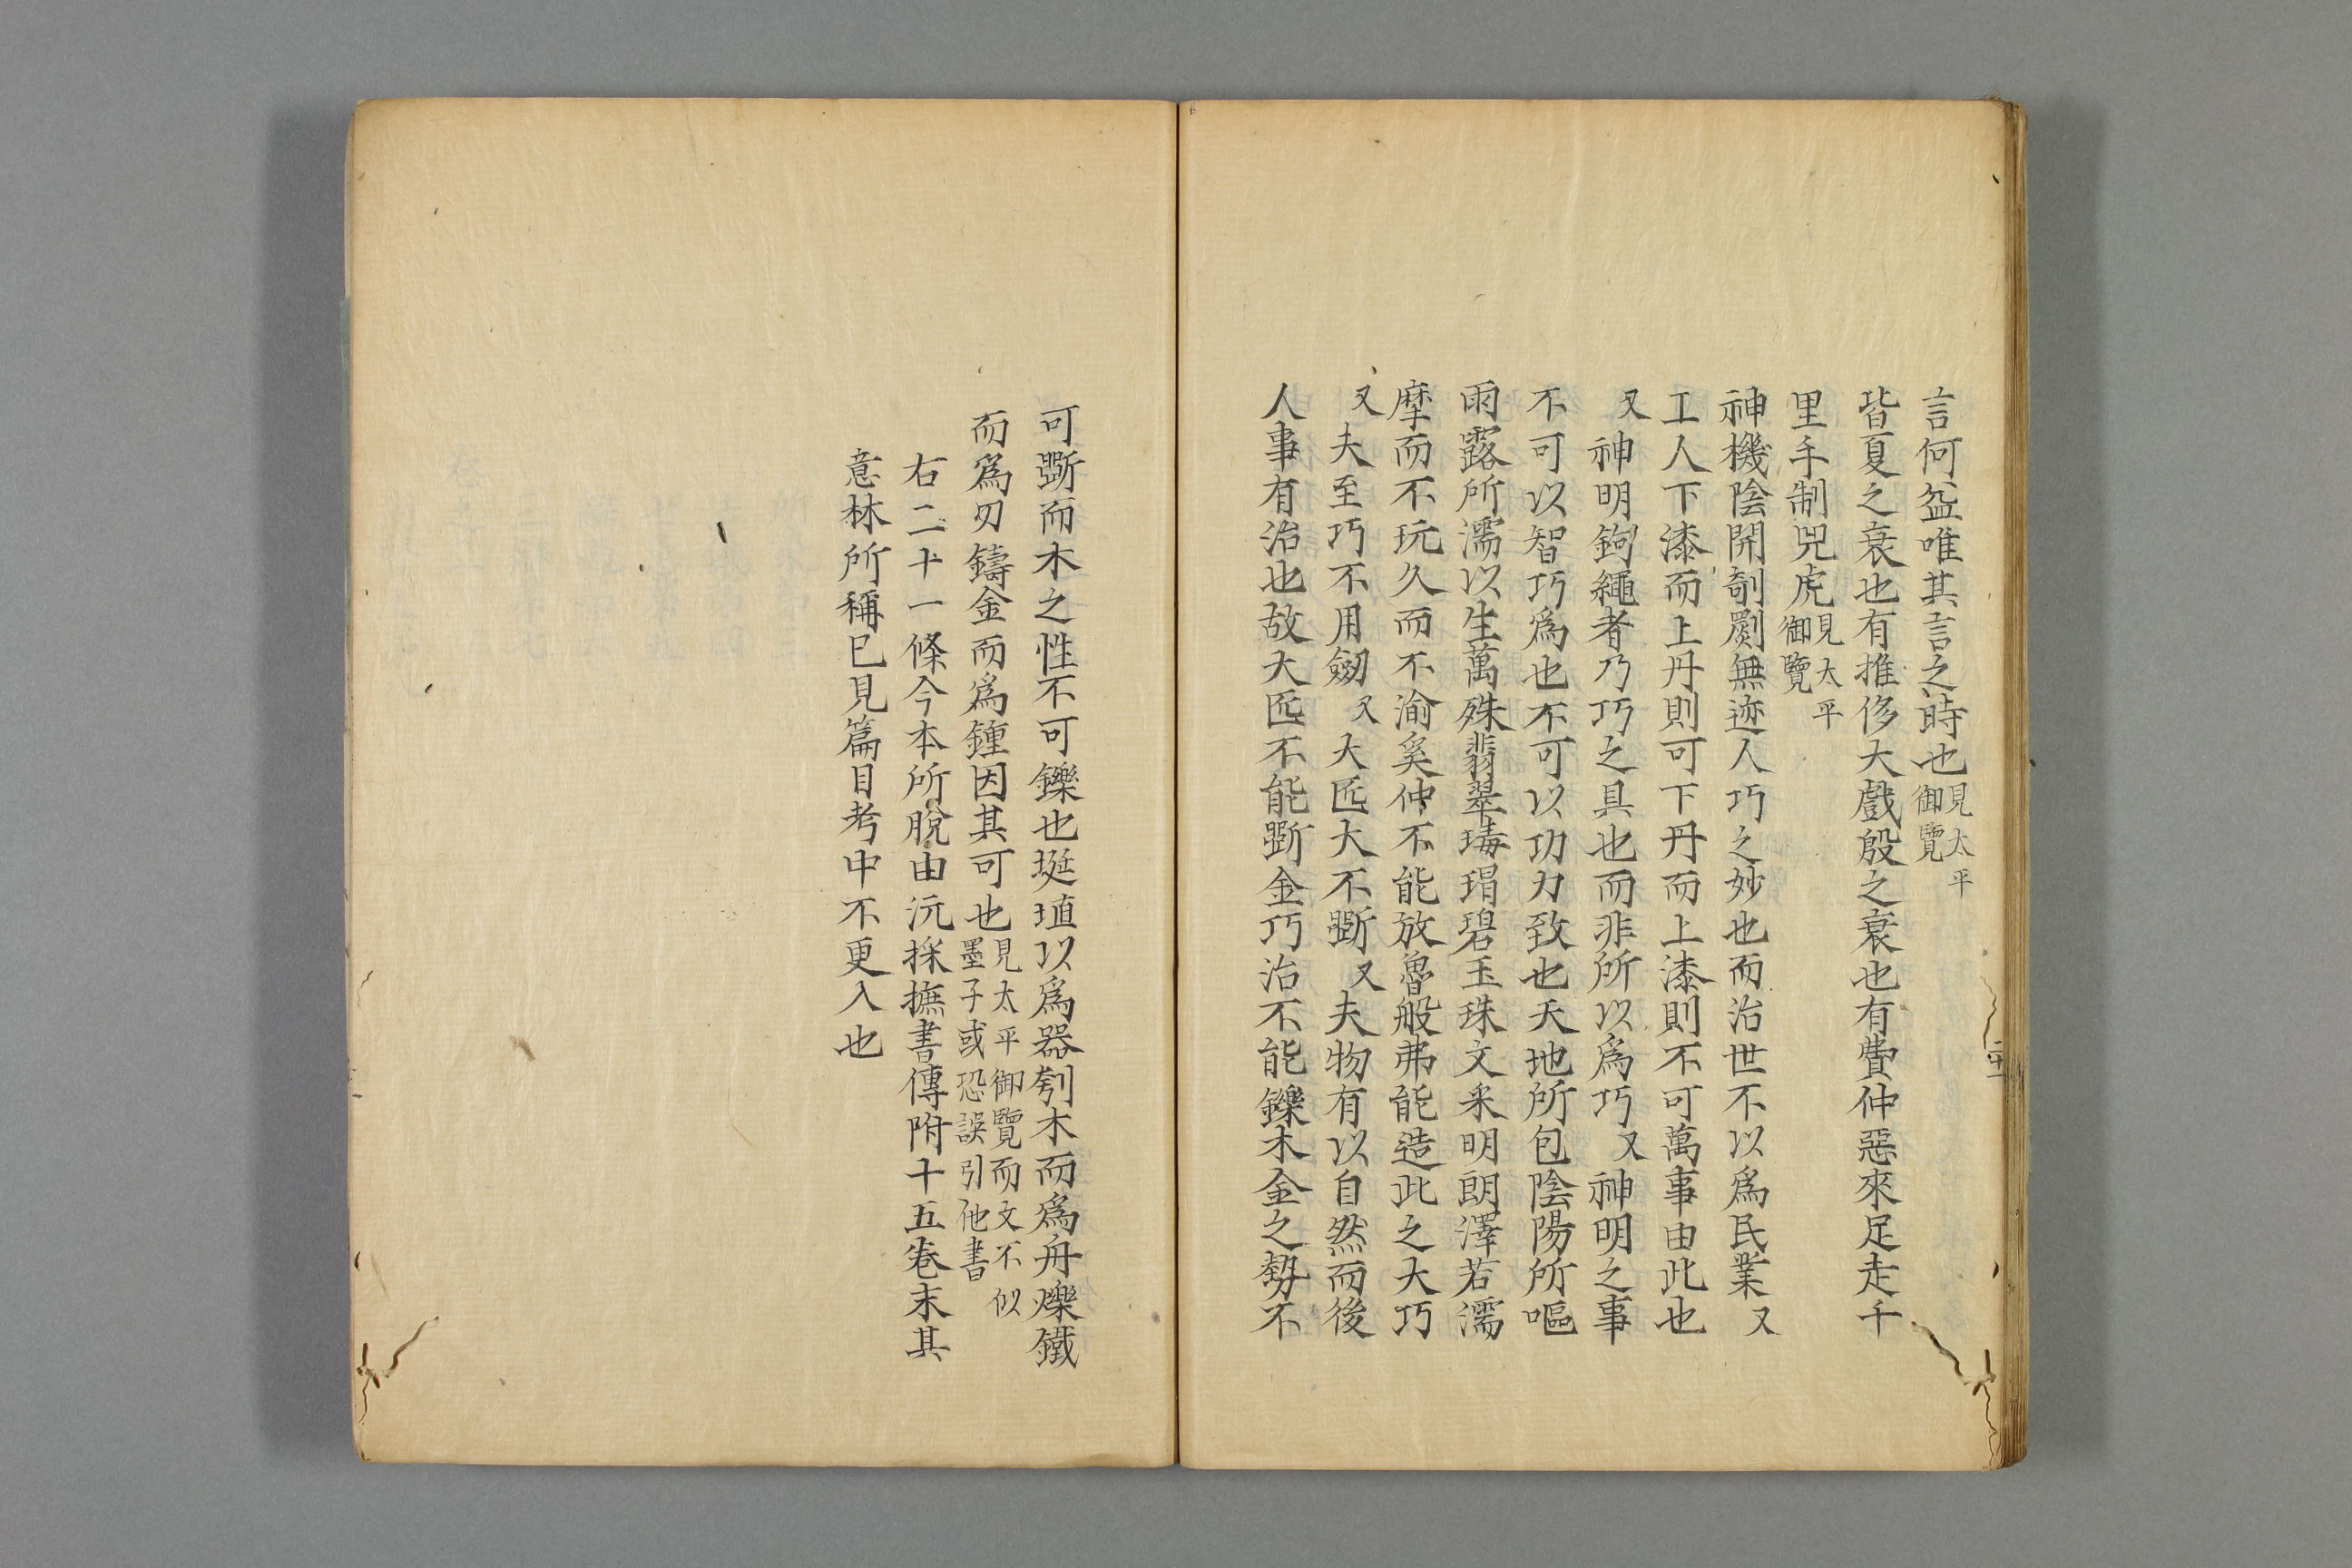 言何益唯其言之時也見太平御覽
皆夏之衰也有推侈大戲殷之衰也有費仲惡來足走千
里手制兕虎見太平御覽
神機陰開剞劂無迹人巧之妙也而治世不以爲民業又
工人下漆而上丹則可下丹而上漆則不可萬事由此也
又神明鉤繩者乃巧之具也而非所以爲巧又神明之事
不可以智巧爲也不可以功力致也天地所包陰陽所嘔
雨露所濡以生萬殊翡翠瑇瑁碧玉珠文采明朗澤若濡
摩而不玩久而不渝奚仲不能放魯般弗能造此之大巧
又夫至巧不用劒又大匠大不斲又夫物有以自然而後
人事有治也故大匠不能斲金巧治不能鑠木金之勢不
可斲而木之性不可鑠也埏埴以爲器刳木而爲舟爍鐵
而爲刃鑄金而爲鍾因其可也見太平御覽而文不似墨子或恐誤引他書
右二十一條今本所脫由沅採撫書傳附十五卷末其
意林所稱已見篇目考中不更入也